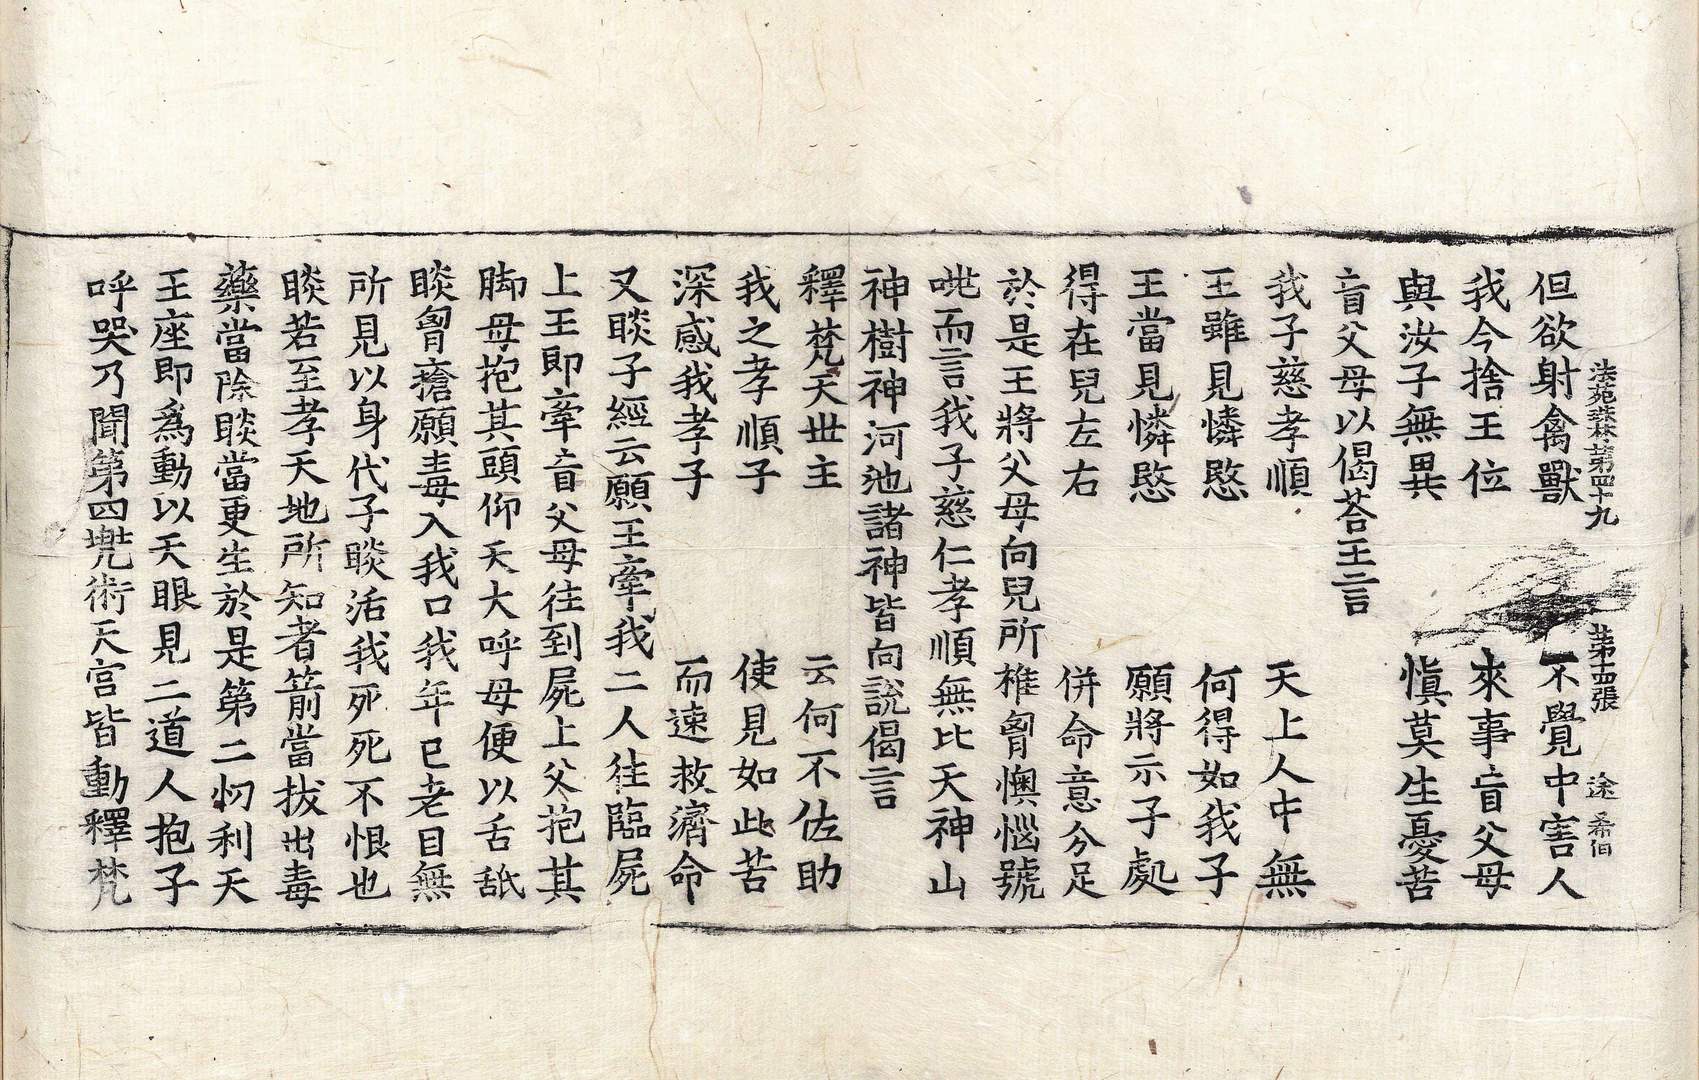 法苑珠林第四十九 第十五張 途 希佀
但欲射禽獸 不覺中害人
我今捨王位 來事盲父母
與汝子無異 慎莫生憂苦
盲父母以偈荅王言
我子慈孝順 天上人中無
王雖見憐愍 何得如我子
王當見憐愍 願將示子處
得在兒左右 併命意分足
於是王將父母向兒所椎胷懊惱號
咷而言我子慈仁孝順無比天神山
神樹神河池諸神皆向說偈言
釋梵天世主 云何不佐助
我之孝順子 使見如此苦
深感我孝子 而速救濟命
又睒子經云願王牽我二人往臨屍
上王即牽盲父母往到屍上父抱其
脚母抱其頭仰天大呼母便以舌舐
睒胷瘡願毒入我口我年已老目無
所見以身代子睒活我死死不恨也
睒若至孝天地所知者箭當拔出毒
藥當除睒當更生於是第二忉利天
王座即為動以天眼見二道人抱子
呼哭乃聞第四兠術天宮皆動釋梵